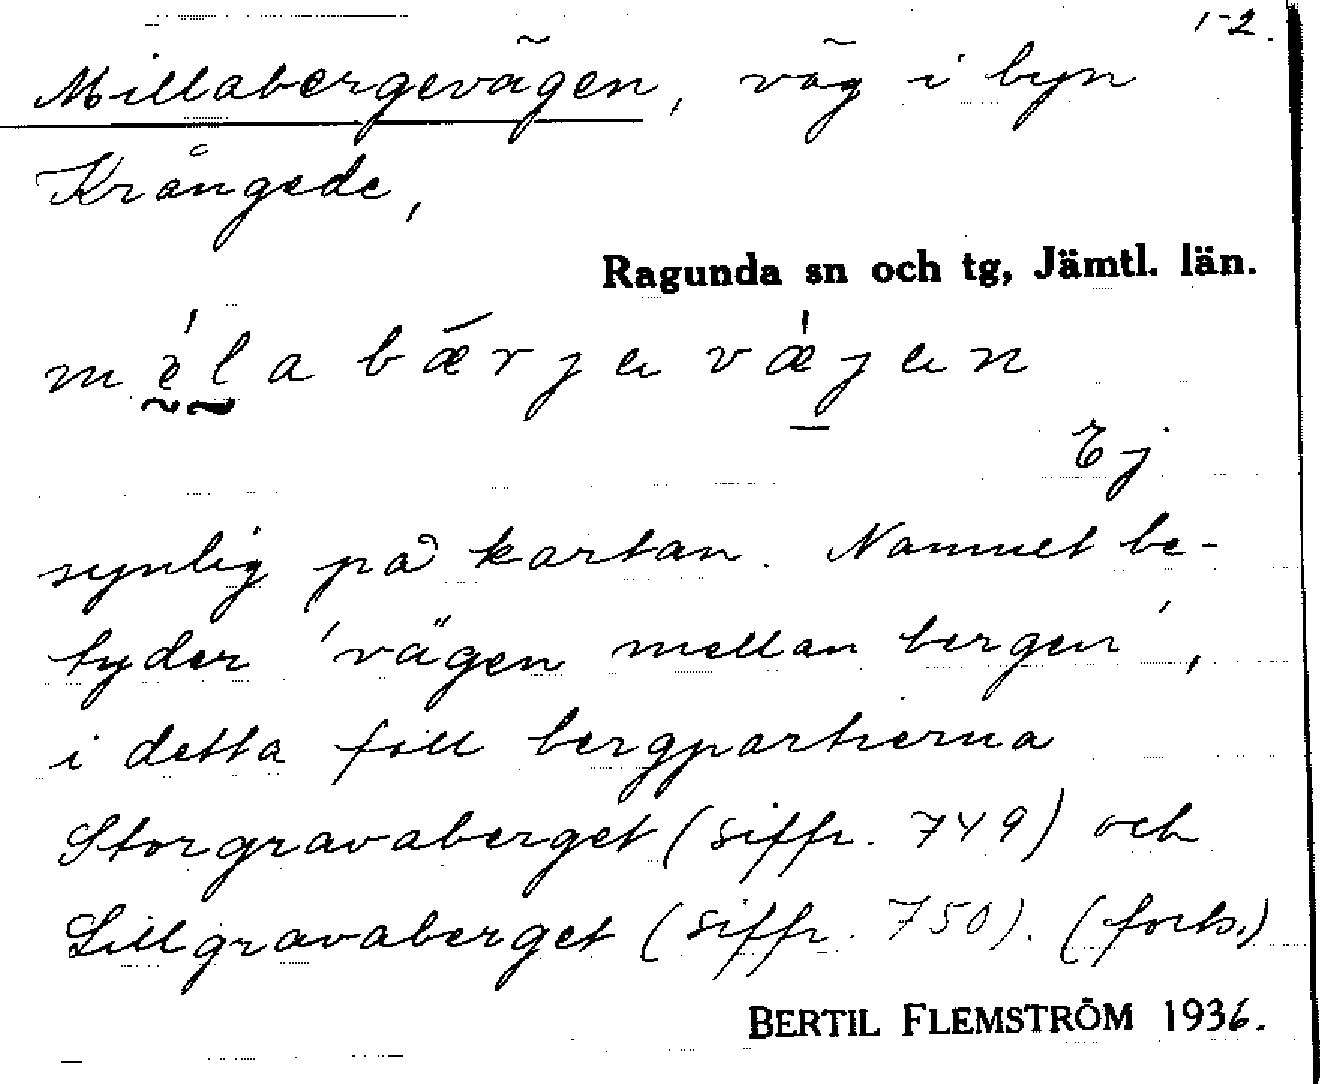 1-2.
Millabergevägen, väg i byn
Krångede,
Ragunda sn och tg, Jämtl. län.
méla bǽrje vǽjen
Ej
synlig på kartan. Namnet be-
tyder 'vägen mellan bergen',
i detta fall bergpartierna
Storgravaberget (siffr. 749) och
Lillgravaberget (siffr. 750). (forts.)
BERTIL FLEMSTRÖM 1936.